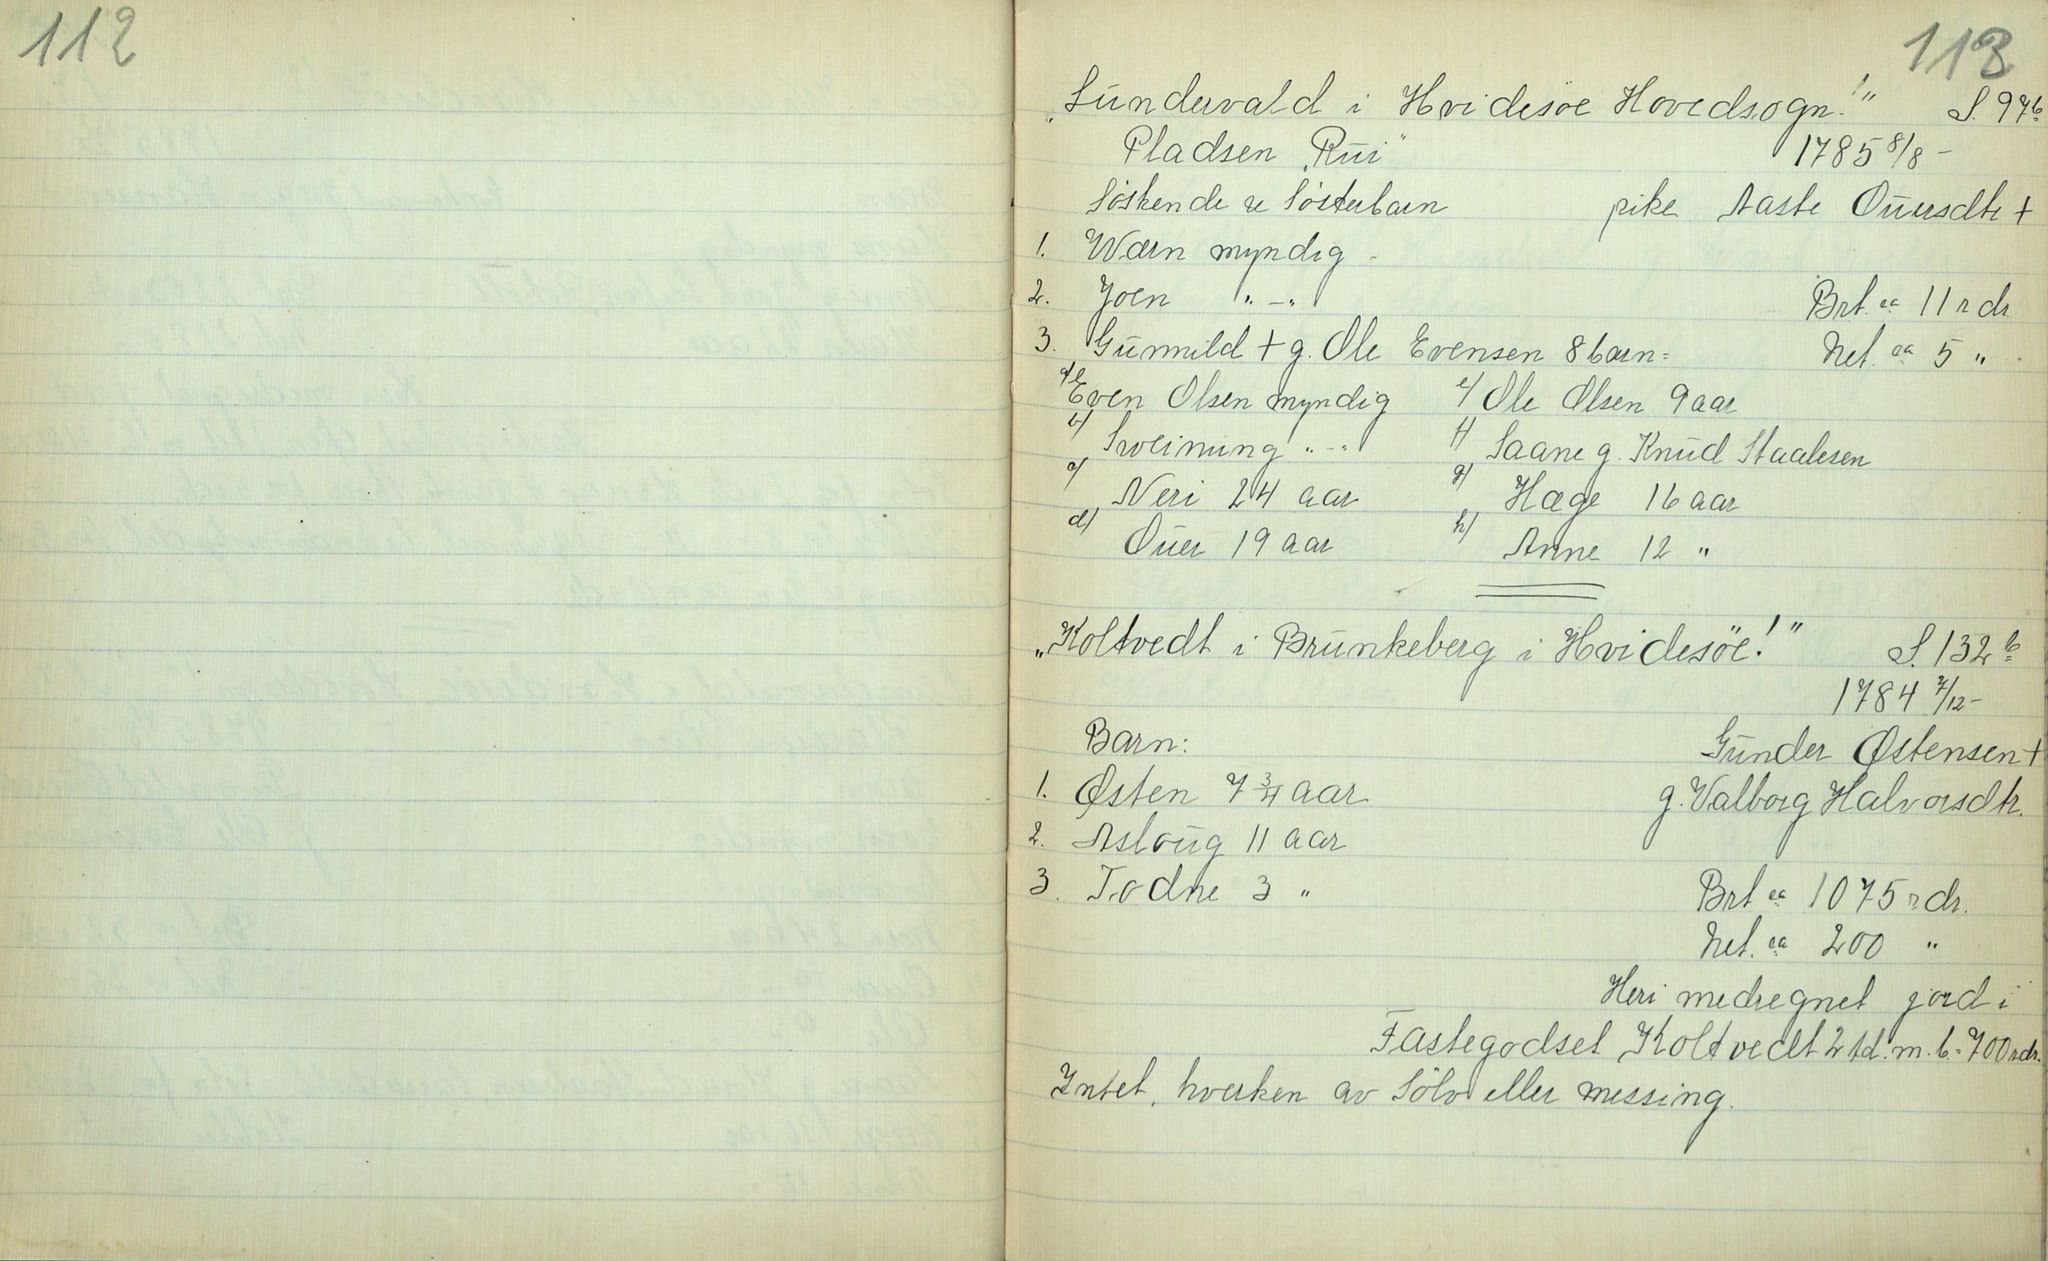 112
113
„Sundervald i Hvidesöe Hovedsogn!" S. 97b
Pladsen „Rui" 1785 8/8 -
Söskende & Sösterbarn pike Aaste Ouersdtr +
1. Wærn myndig -
2. Joen " - " Brt. ca 11 rdr.
3. Gunnild + g. Ole Evensen 8 barn = Net. ca 5 "
a/ Even Olsen myndig e/ Ole Olsen 9 aar
b/ Sveinung " - " f/ Saane g. Knud Staalesen
c/ Neri 24 aar g/ Hæge 16 aar
d/ Ouer 19 aar h/ Anne 12 "
„Koltvedt i Brunkeberg i Hvidesöe!" S. 132b
1784 7/12 -
Barn: Gunder Østensen +
1. Østen 7 3/4 aar g. Valborg Halvorsdtr.
2. Asloug 11 aar
3. Todne 3 " Brt ca 1075 rdr.
Net. ca 200 "
Heri medregnet jord i
Fastegodset Koltvedt 2 td. m. b. = 700 rdr.
Intet, hverken av Sölv eller messing.